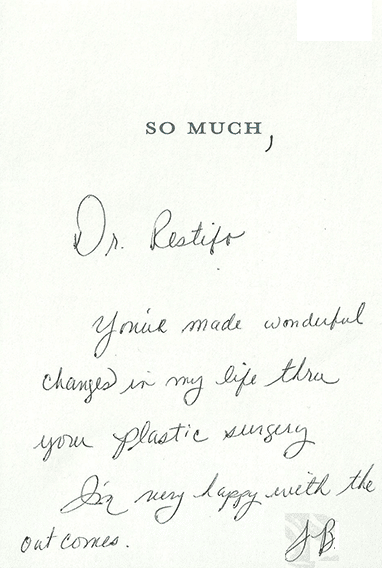 SO MUCH,
Dr. Restifo
You've made wonderful
changes in my life thru
your plastic surgery
I'm very happy with the
outcomes. J B.